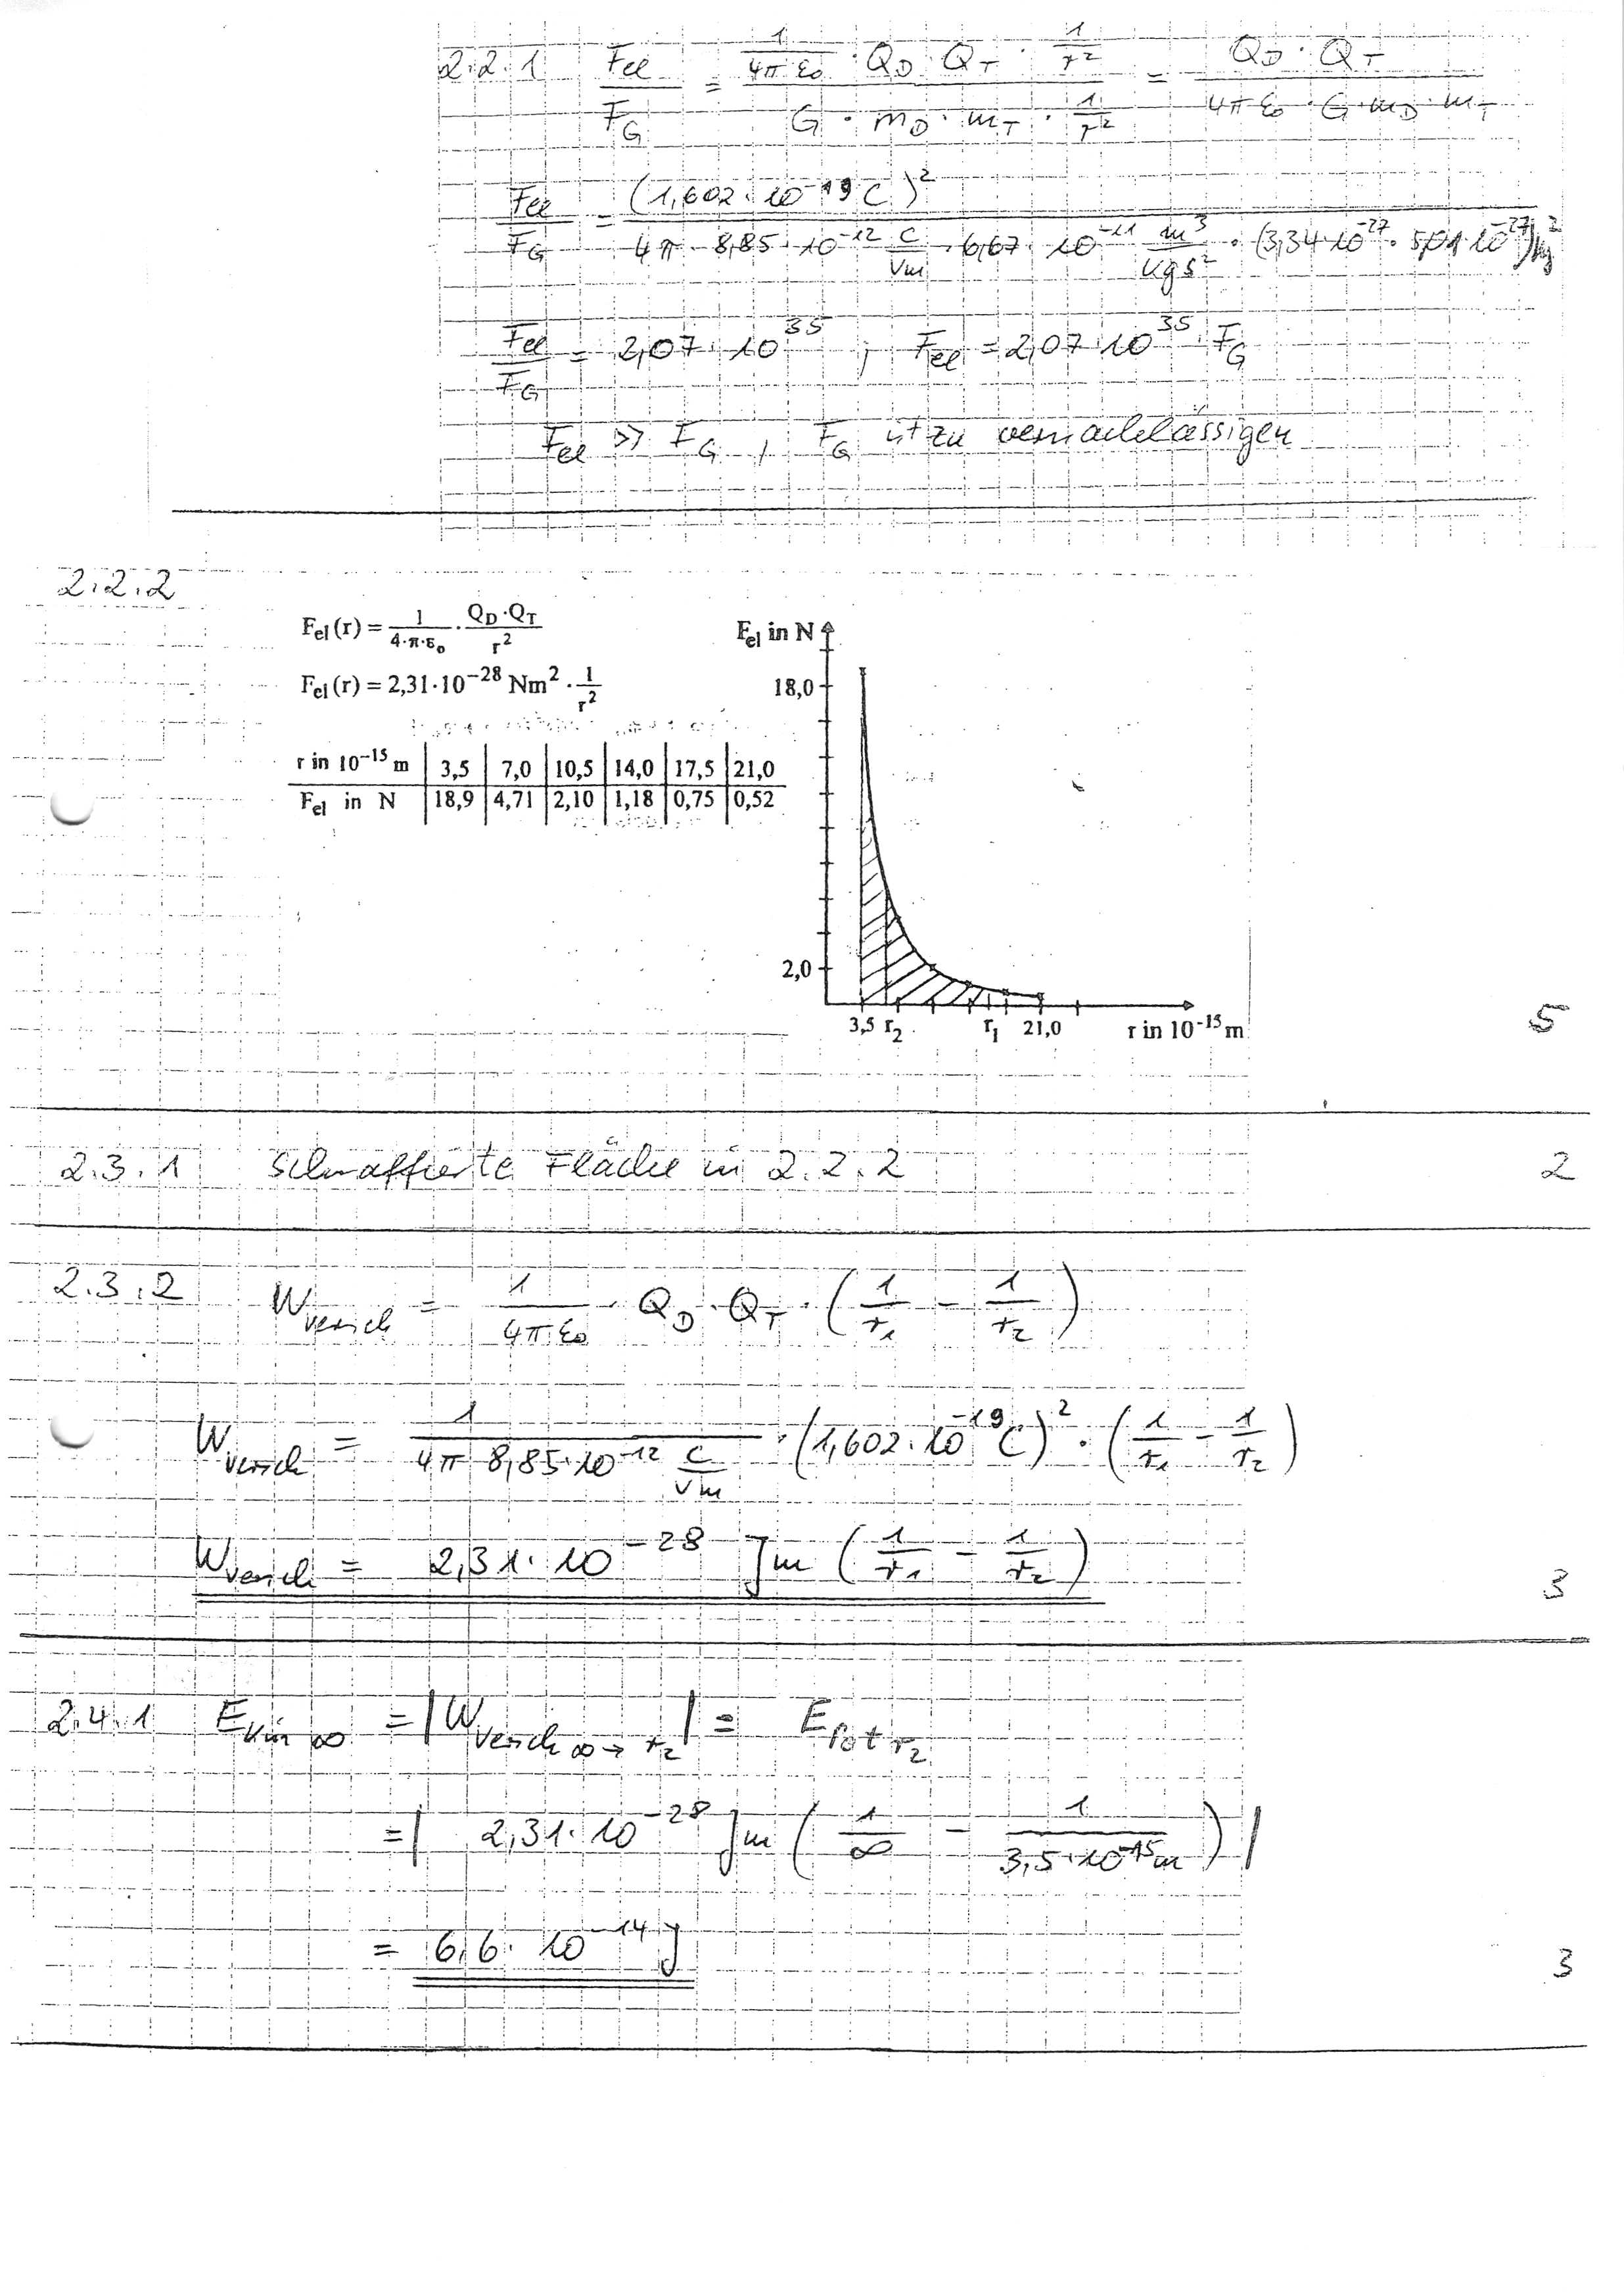 2.2.1 Fel / FG = (1/(4π ε0) · QD · QT · 1/r²) / (G · mD · mT · 1/r²) = (QD · QT) / (4π ε0 · G · mD · mT)
Fel / FG = (1,602 · 10⁻¹⁹ C)² / (4π · 8,85 · 10⁻¹² C/Vm · 6,67 · 10⁻¹¹ m³/kgs² · (3,34·10⁻²⁷ · 5,01·10⁻²⁷)kg²)
Fel / FG = 2,07 · 10³⁵ ; Fel = 2,07 · 10³⁵ · FG
Fel >> FG , FG ist zu vernachlässigen
2.2.2
Fel (r) = 1/(4·π·ε0) · QD·QT/r²
Fel (r) = 2,31·10⁻²⁸ Nm² · 1/r²
r in 10⁻¹⁵ m | 3,5 | 7,0 | 10,5 | 14,0 | 17,5 | 21,0
Fel in N | 18,9 | 4,71 | 2,10 | 1,18 | 0,75 | 0,52
Fel in N
18,0
2,0
3,5 r2 r1 21,0 r in 10⁻¹⁵ m
5
2.3.1 Schraffierte Fläche in 2.2.2
2
2.3.2 Wversch = 1/(4π ε0) · QD · QT · (1/r1 − 1/r2)
Wversch = 1/(4π 8,85·10⁻¹² C/Vm) · (1,602·10⁻¹⁹ C)² · (1/r1 − 1/r2)
Wversch = 2,31·10⁻²⁸ Jm (1/r1 − 1/r2)
3
2.4.1 Ekin ∞ = |Wversch ∞→ r2| = Epot r2
= | 2,31·10⁻²⁸ Jm (1/∞ − 1/(3,5·10⁻¹⁵m)) |
= 6,6 · 10⁻¹⁴ J
3